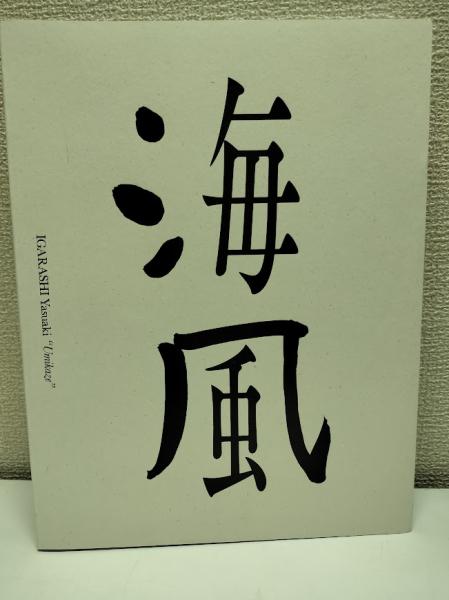 海風
IGARASHI Yasuaki "Umikaze"